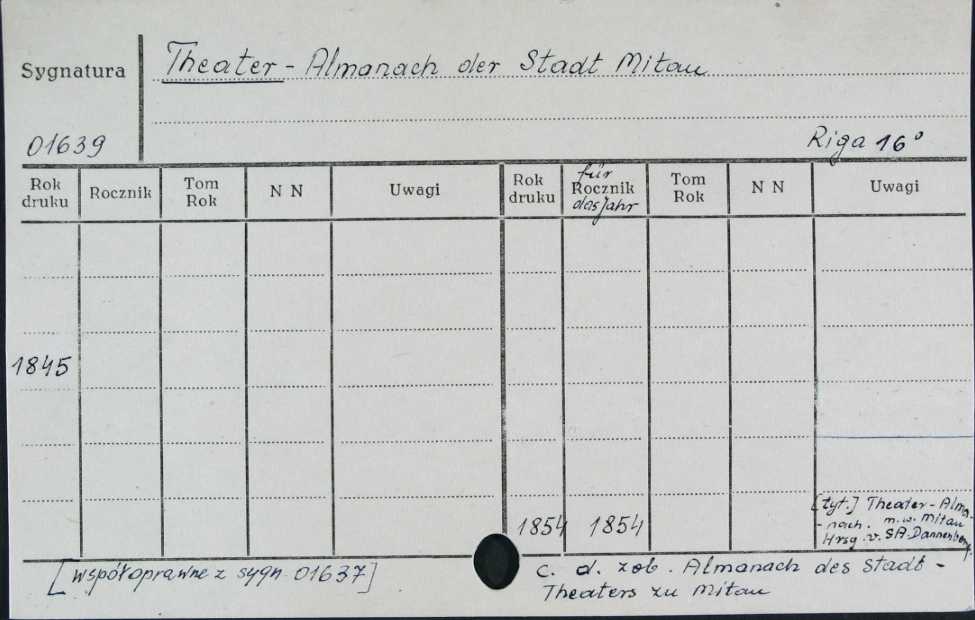 Sygnatura
Theater - Almanach der Stadt Mitau
01639
Riga 16°
Rok druku Rocznik Tom Rok N N Uwagi Rok druku für Rocznik das Jahr Tom Rok N N Uwagi
1845
1854 1854 [tyt.] Theater-Alma-
-nach. m.w. Mitau
Hrsg. v. SA. Dannenberg.
[współoprawne z sygn. 01637]
c. d. zob. Almanach des Stadt-
Theaters zu Mitau